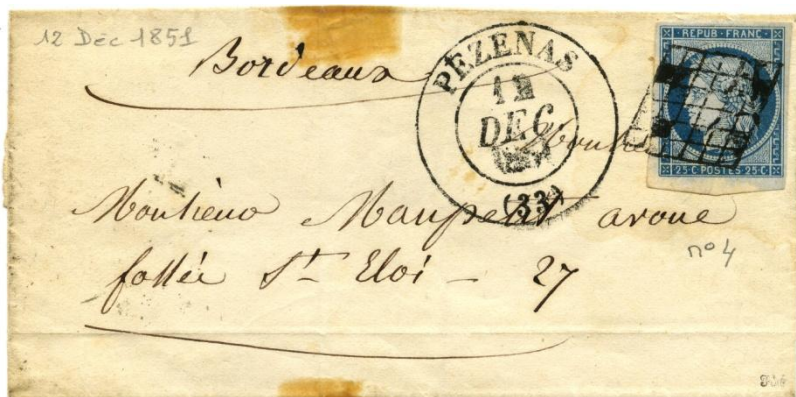 12 Dec 1851
Bordeaux
PÉZENAS
12
DEC
(33)
REPUB·FRANC·
25·C·POSTES·25·C·
Monsieur
avoué
fossée St Eloi – 27
n° 4